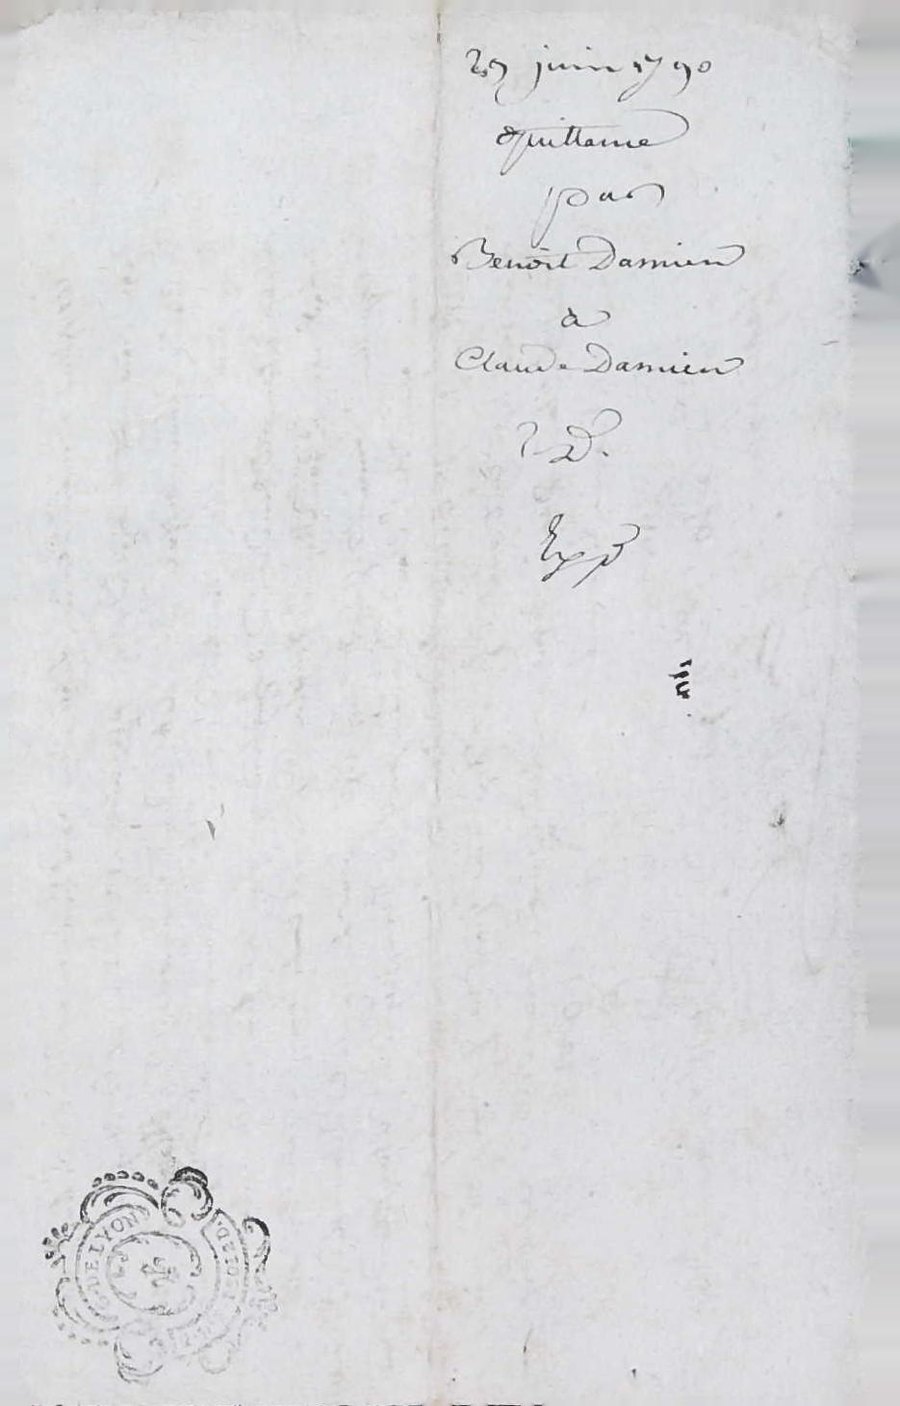 27 juin 1790
quittance
par
Benoît Damien
à
Claude Damien
2 D.
Exp
DE LYON